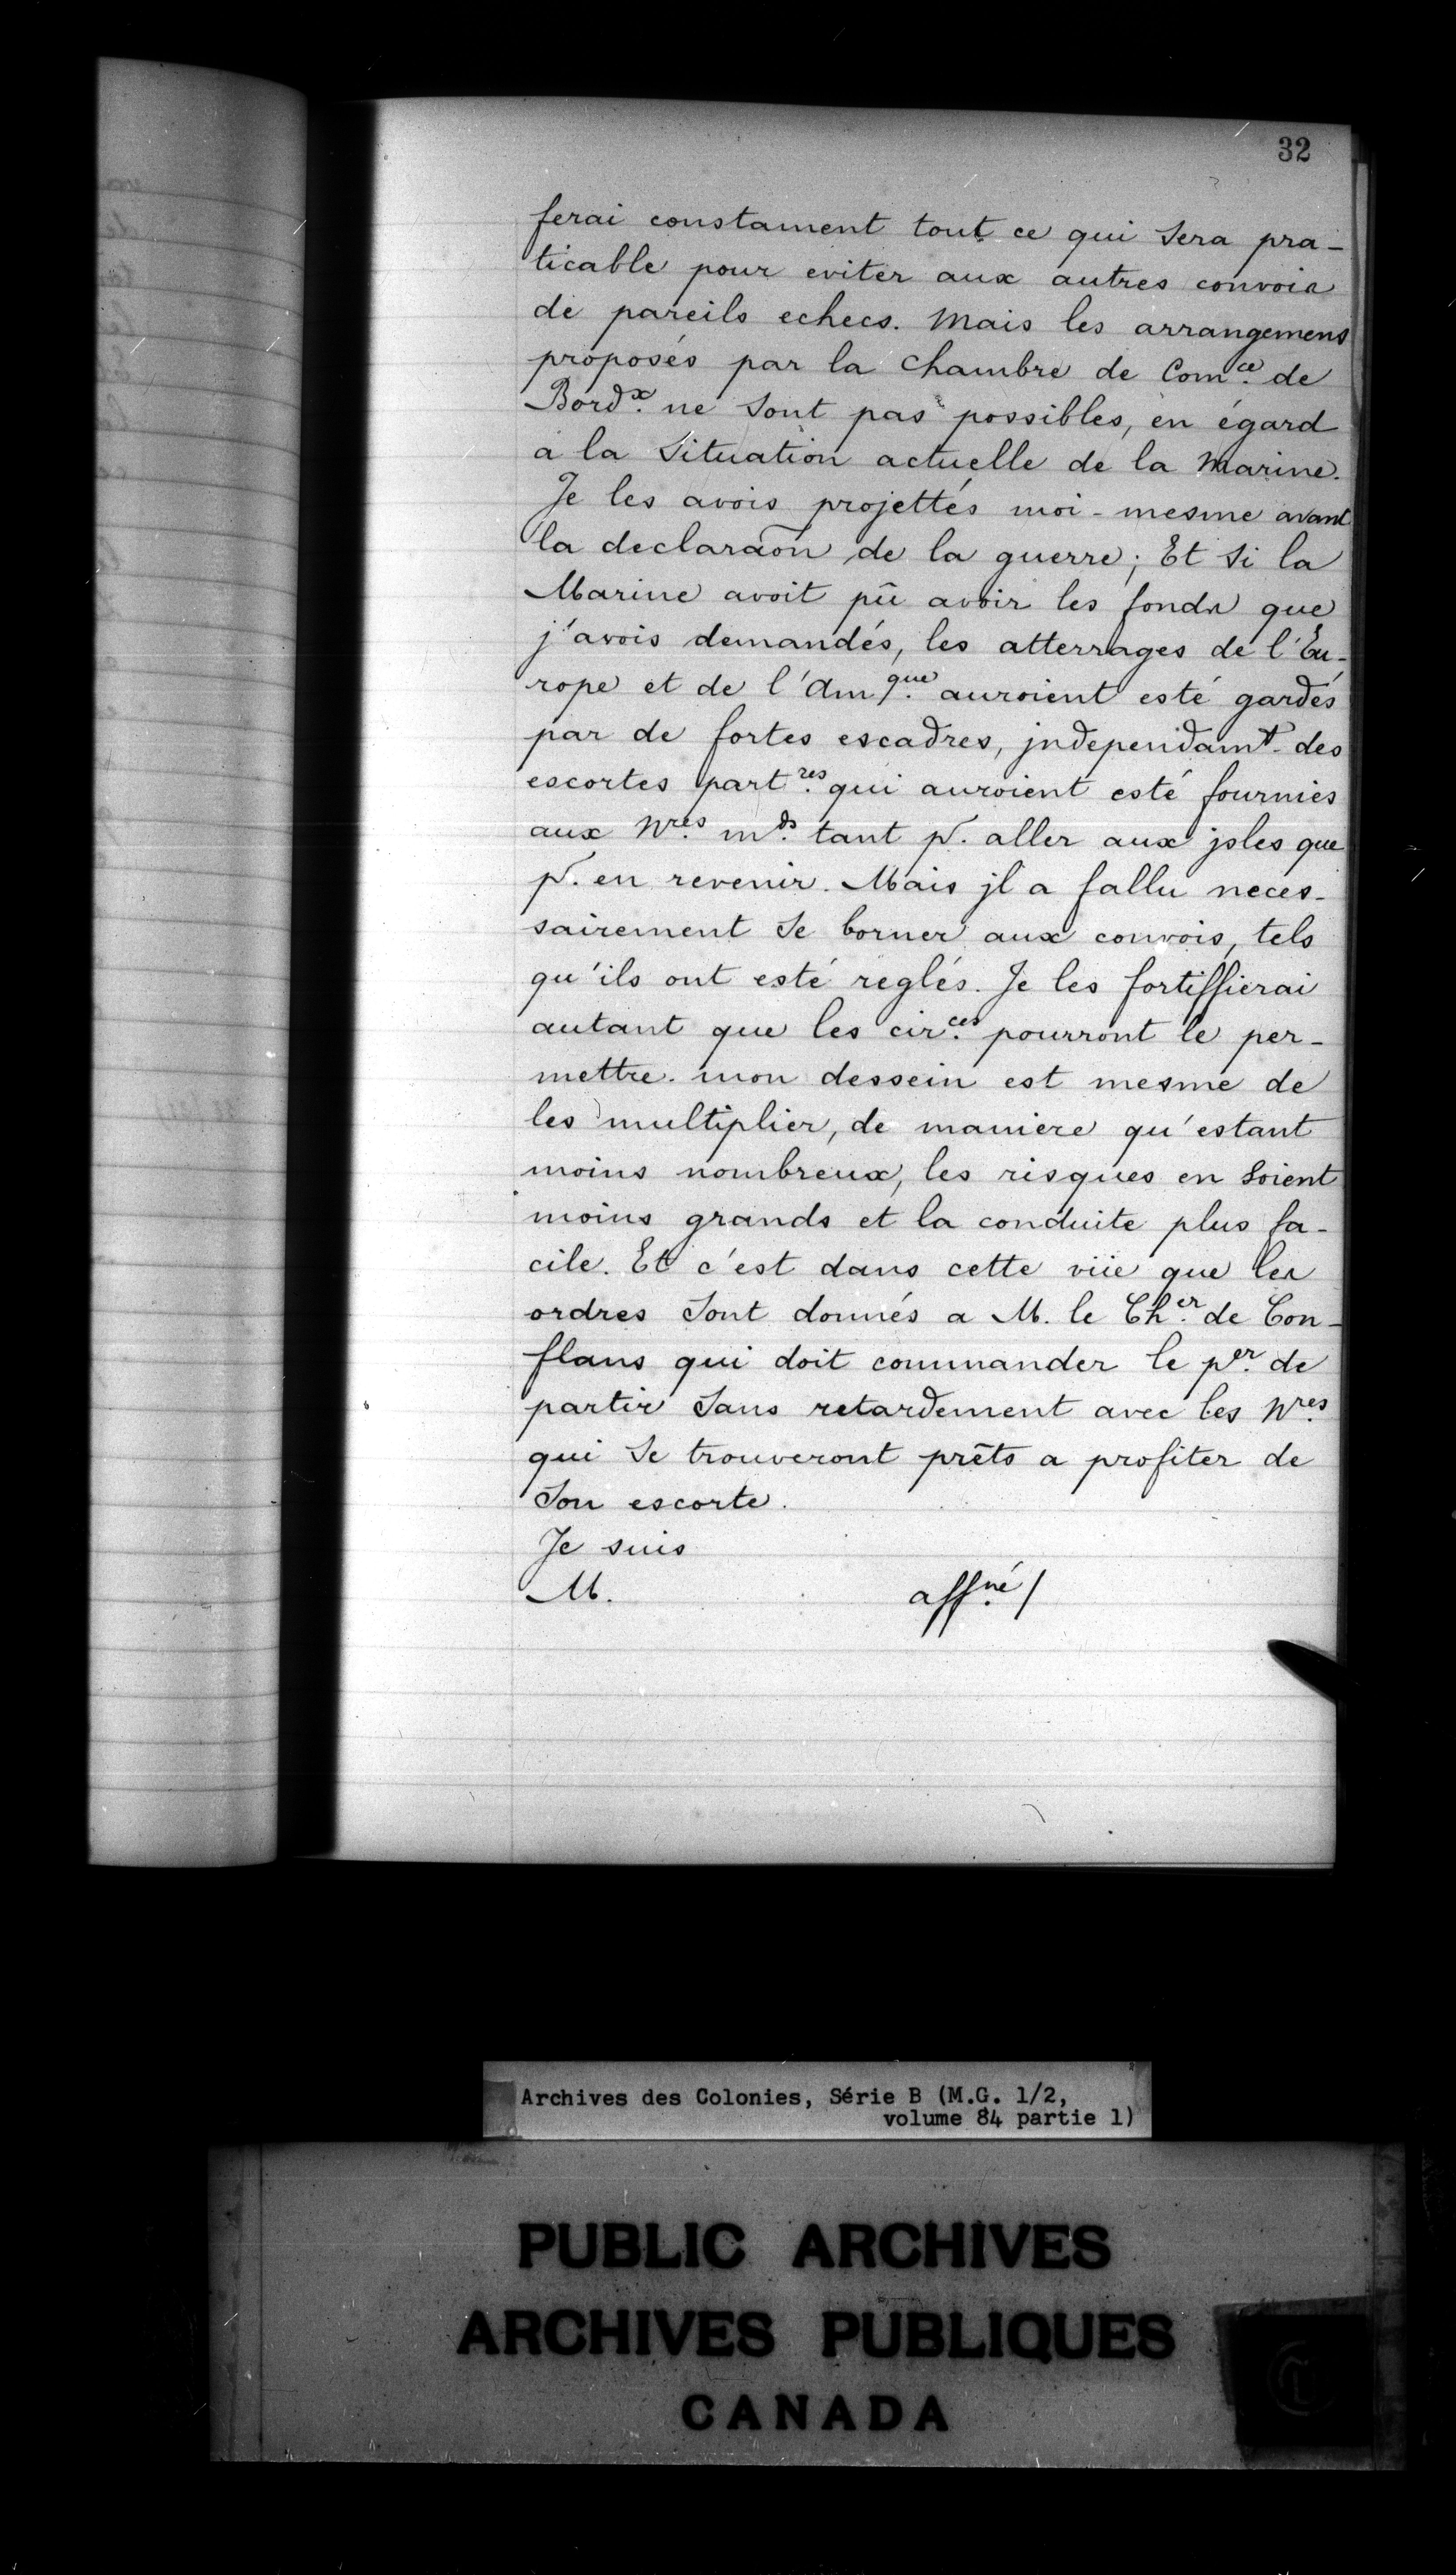 32
ferai constament tout ce qui sera pra-
ticable pour eviter aux autres convois
de pareils echecs. Mais les arrangemens
proposés par la Chambre de Com.ce de
Bord.x ne sont pas possibles, en égard
a la situation actuelle de la Marine.
Je les avois projettés moi-mesme avant
la declaraōn de la guerre; Et si la
Marine avoit pû avoir les fonds que
j'avois demandés, les atterrages de l'Eu-
rope et de l'Am.que auroient esté gardés
par de fortes escadres, jndependam.t des
escortes part.res qui auroient esté fournies
aux N.res m.ds tant p.r aller aux jsles que
p.r en revenir. Mais jl a fallu neces-
sairement se borner aux convois, tels
qu'ils ont esté reglés. Je les fortiffierai
autant que les cir.ces pourront le per-
mettre. mon dessein est mesme de
les multiplier, de maniere qu'estant
moins nombreux, les risques en soient
moins grands et la conduite plus fa-
cile. Et c'est dans cette vüe que les
ordres sont donnés a M. le Ch.er de Con-
flans qui doit commander le p.er de
partir sans retardement avec les N.res
qui se trouveront prêts a profiter de
son escorte.
Je suis
M. aff.né /
Archives des Colonies, Série B (M.G. 1/2,
volume 84 partie 1)
PUBLIC ARCHIVES
ARCHIVES PUBLIQUES
CANADA